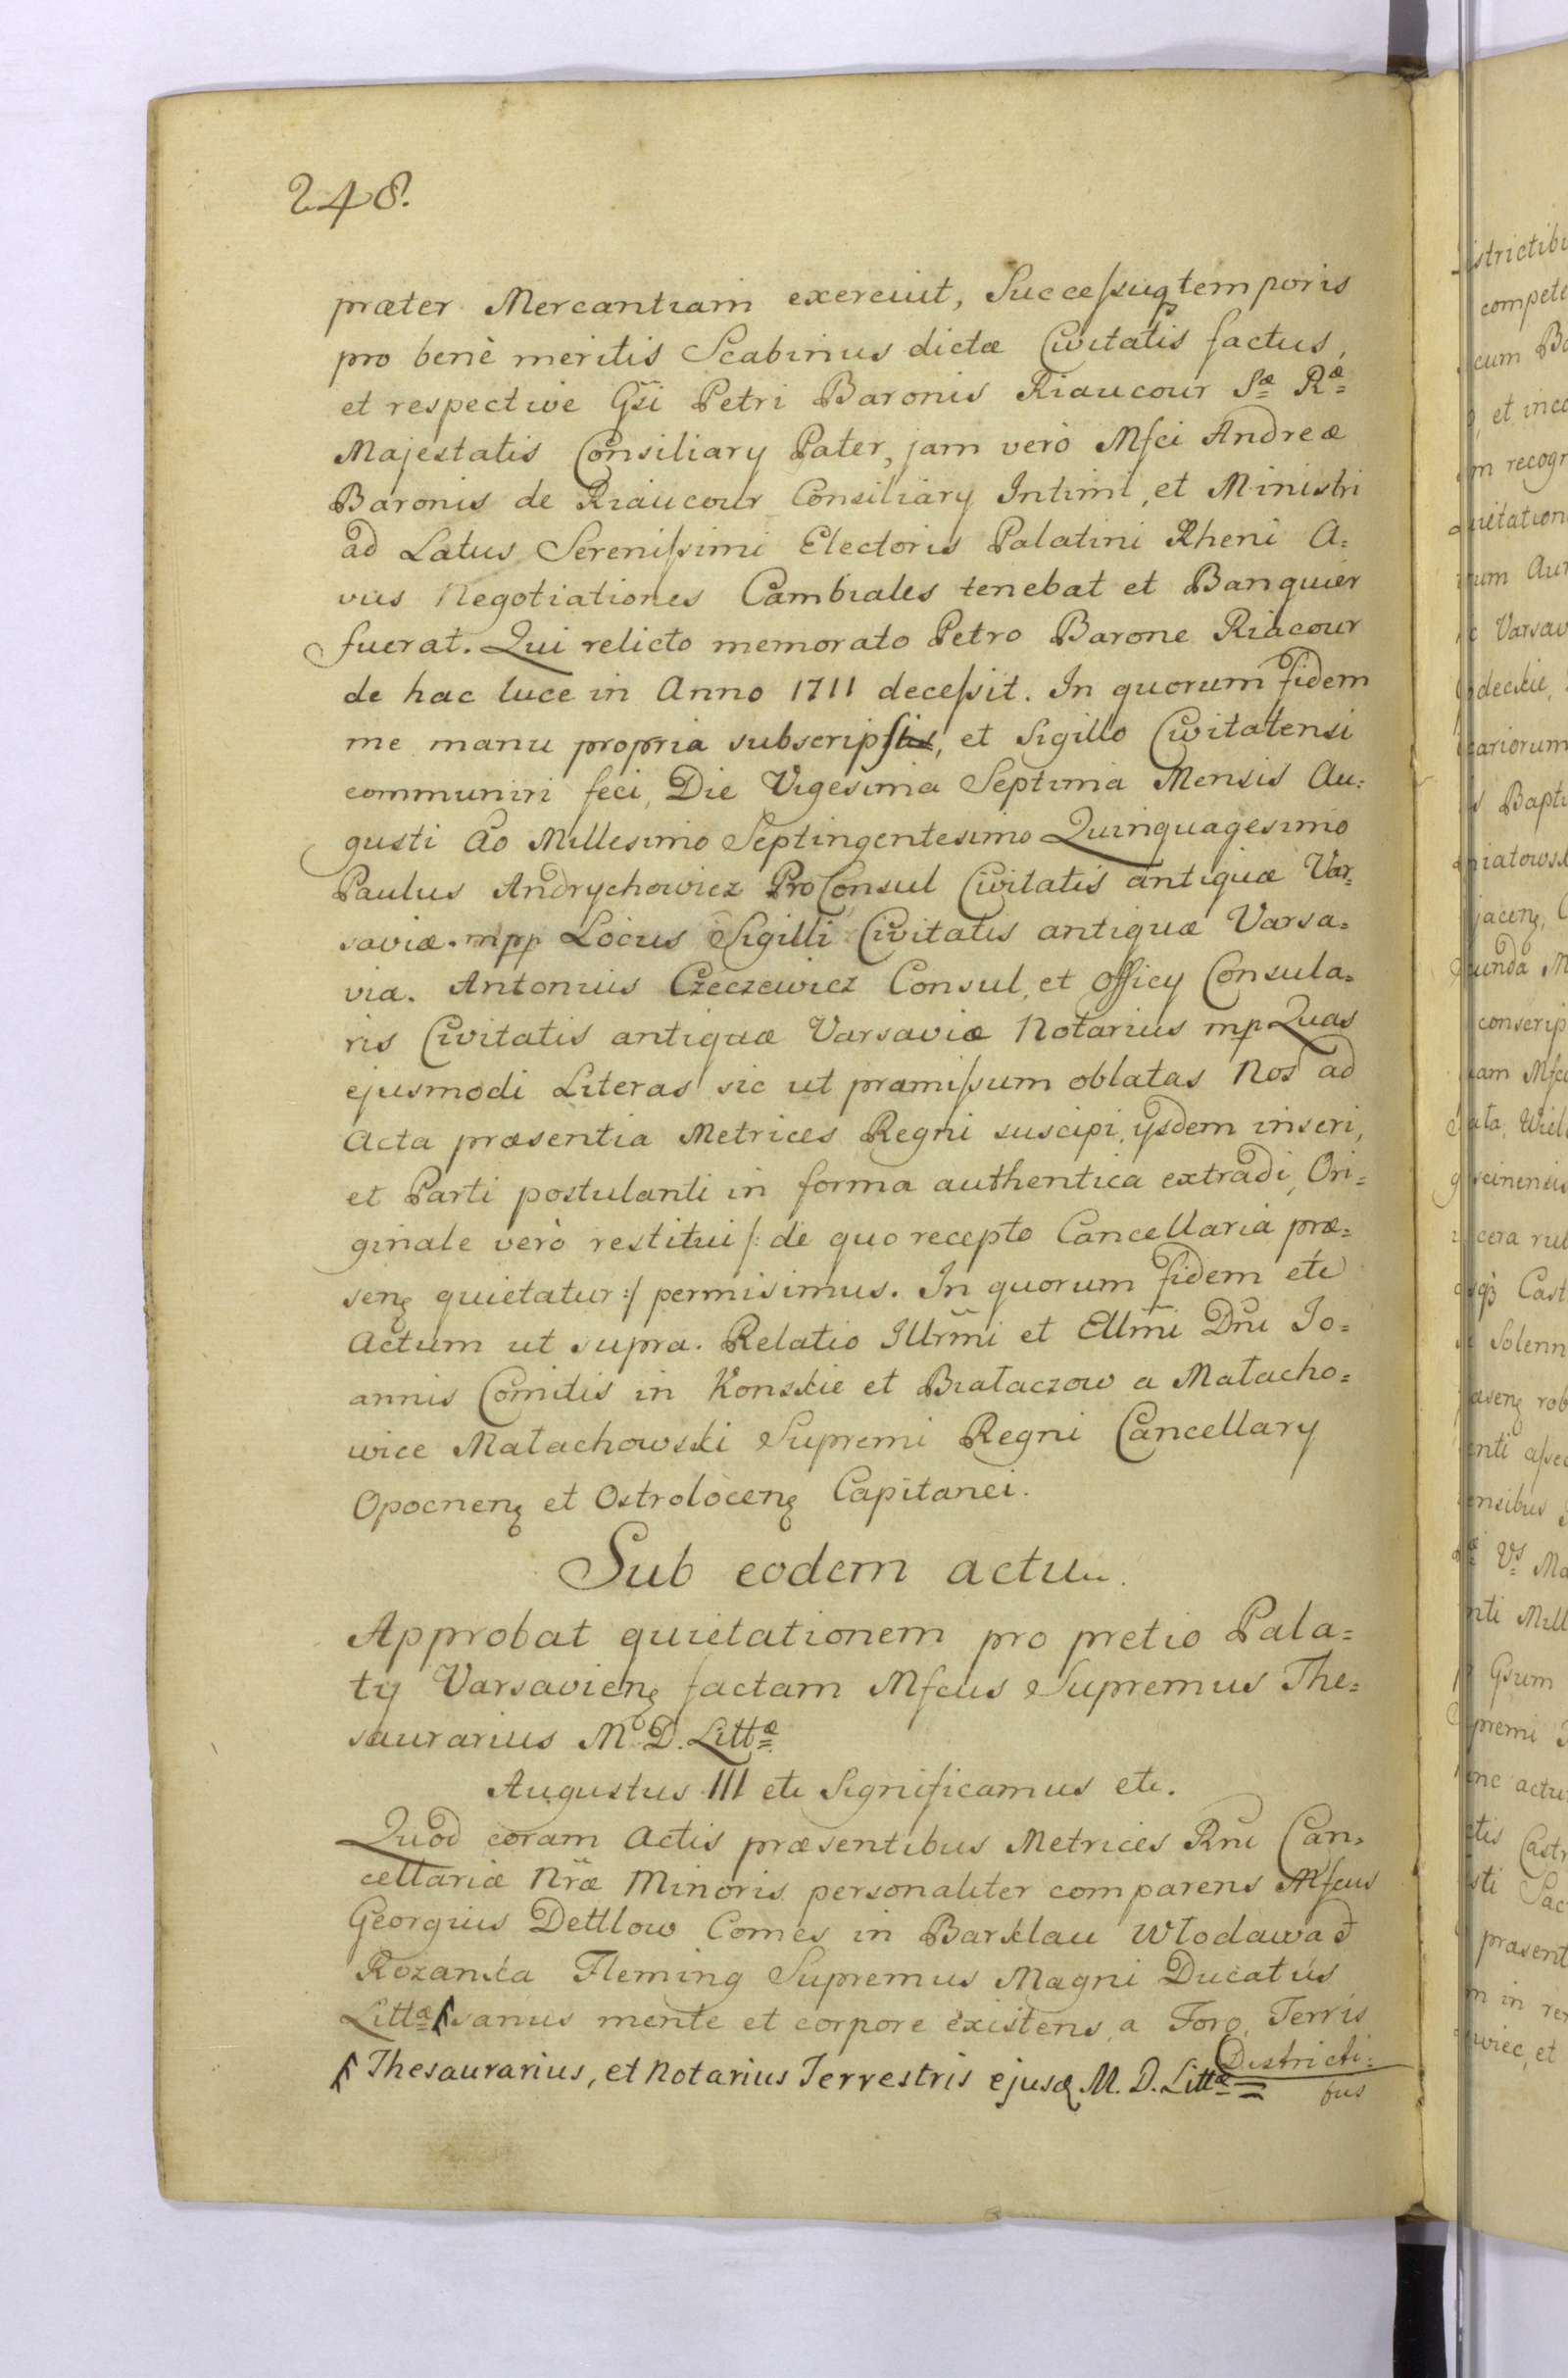 248.
præter Mercantiam exercuit, Successuq temporis
pro benè meritis Scabinus dictæ Civitatis factus,
et respective Gsi Petri Baronis Riaucour Sæ Ræ
Majestatis Consiliary Pater, jam verò Mfci Andreæ
Baronis de Riaucour Consiliary Intimi, et Ministri
ad Latus Serenissimi Electoris Palatini Rheni A=
vus Negotiationes Cambiales tenebat et Banquier
fuerat. Qui relicto memorato Petro Barone Riacour
de hac luce in Anno 1711 decessit. In quorum fidem
me manu propria subscripsi, et Sigillo Civitatensi
communiri feci, Die Vigesima Septima Mensis Au=
gusti Ao Millesimo Septingentesimo Quinquagesimo
Paulus Andrychowicz ProConsul Civitatis antiquæ Var=
saviæ. mpp Locus Sigilli Civitatis antiquæ Varsa=
via. Antonius Czeczewicz Consul, et Officy Consula=
ris Civitatis antiquæ Varsaviæ Notarius mp Quas
ejusmodi Literas sic ut pramissum oblatas Nos ad
Acta præsentia Metrices Regni suscipi, ysdem inseri,
et Parti postulanti in forma authentica extradi, Ori=
ginale verò restitui /: de quo recepto Cancellaria præ=
senę quietatur :/ permisimus. In quorum fidem etc
Actum ut supra. Relatio Illrmi et Ellmi Dni Jo=
annis Comitis in Konskie et Białaczow a Małacho=
wice Małachowski Supremi Regni Cancellary
Opocnenę et Ostrolocenę Capitanei.
Sub eodem actu.
Approbat quietationem pro pretio Pala=
ty Varsavienę factam Mfcus Supremus The=
saurarius M. D. Littæ
Augustus III etc Significamus etc.
Quod coram Actis præsentibus Metrices Rni Can=
cellariæ Nræ Minoris personaliter comparens Mfcus
Georgius Dettlow Comes in Barklau Włodawa et
Rozanka Fleming Supremus Magni Ducatus
Littæ sanus mente et corpore existens, a Foro, Terris
Districti=
bus
Thesaurarius, et Notarius Terrestris ejusd M. D. Littæ